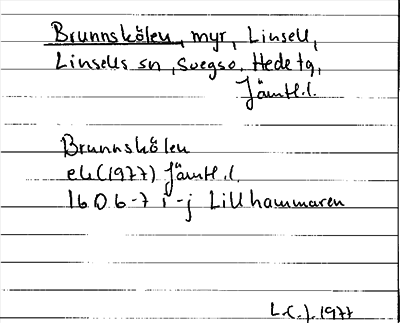 Brunnskölen, myr, Linsell,
Linsells sn, Svegs o. Hede tg,
Jämtl.l.
Brunnskölen
ek (1977) Jämtl.l.
16D 6-7 i-j Lillhammaren
L.C.J. 1977